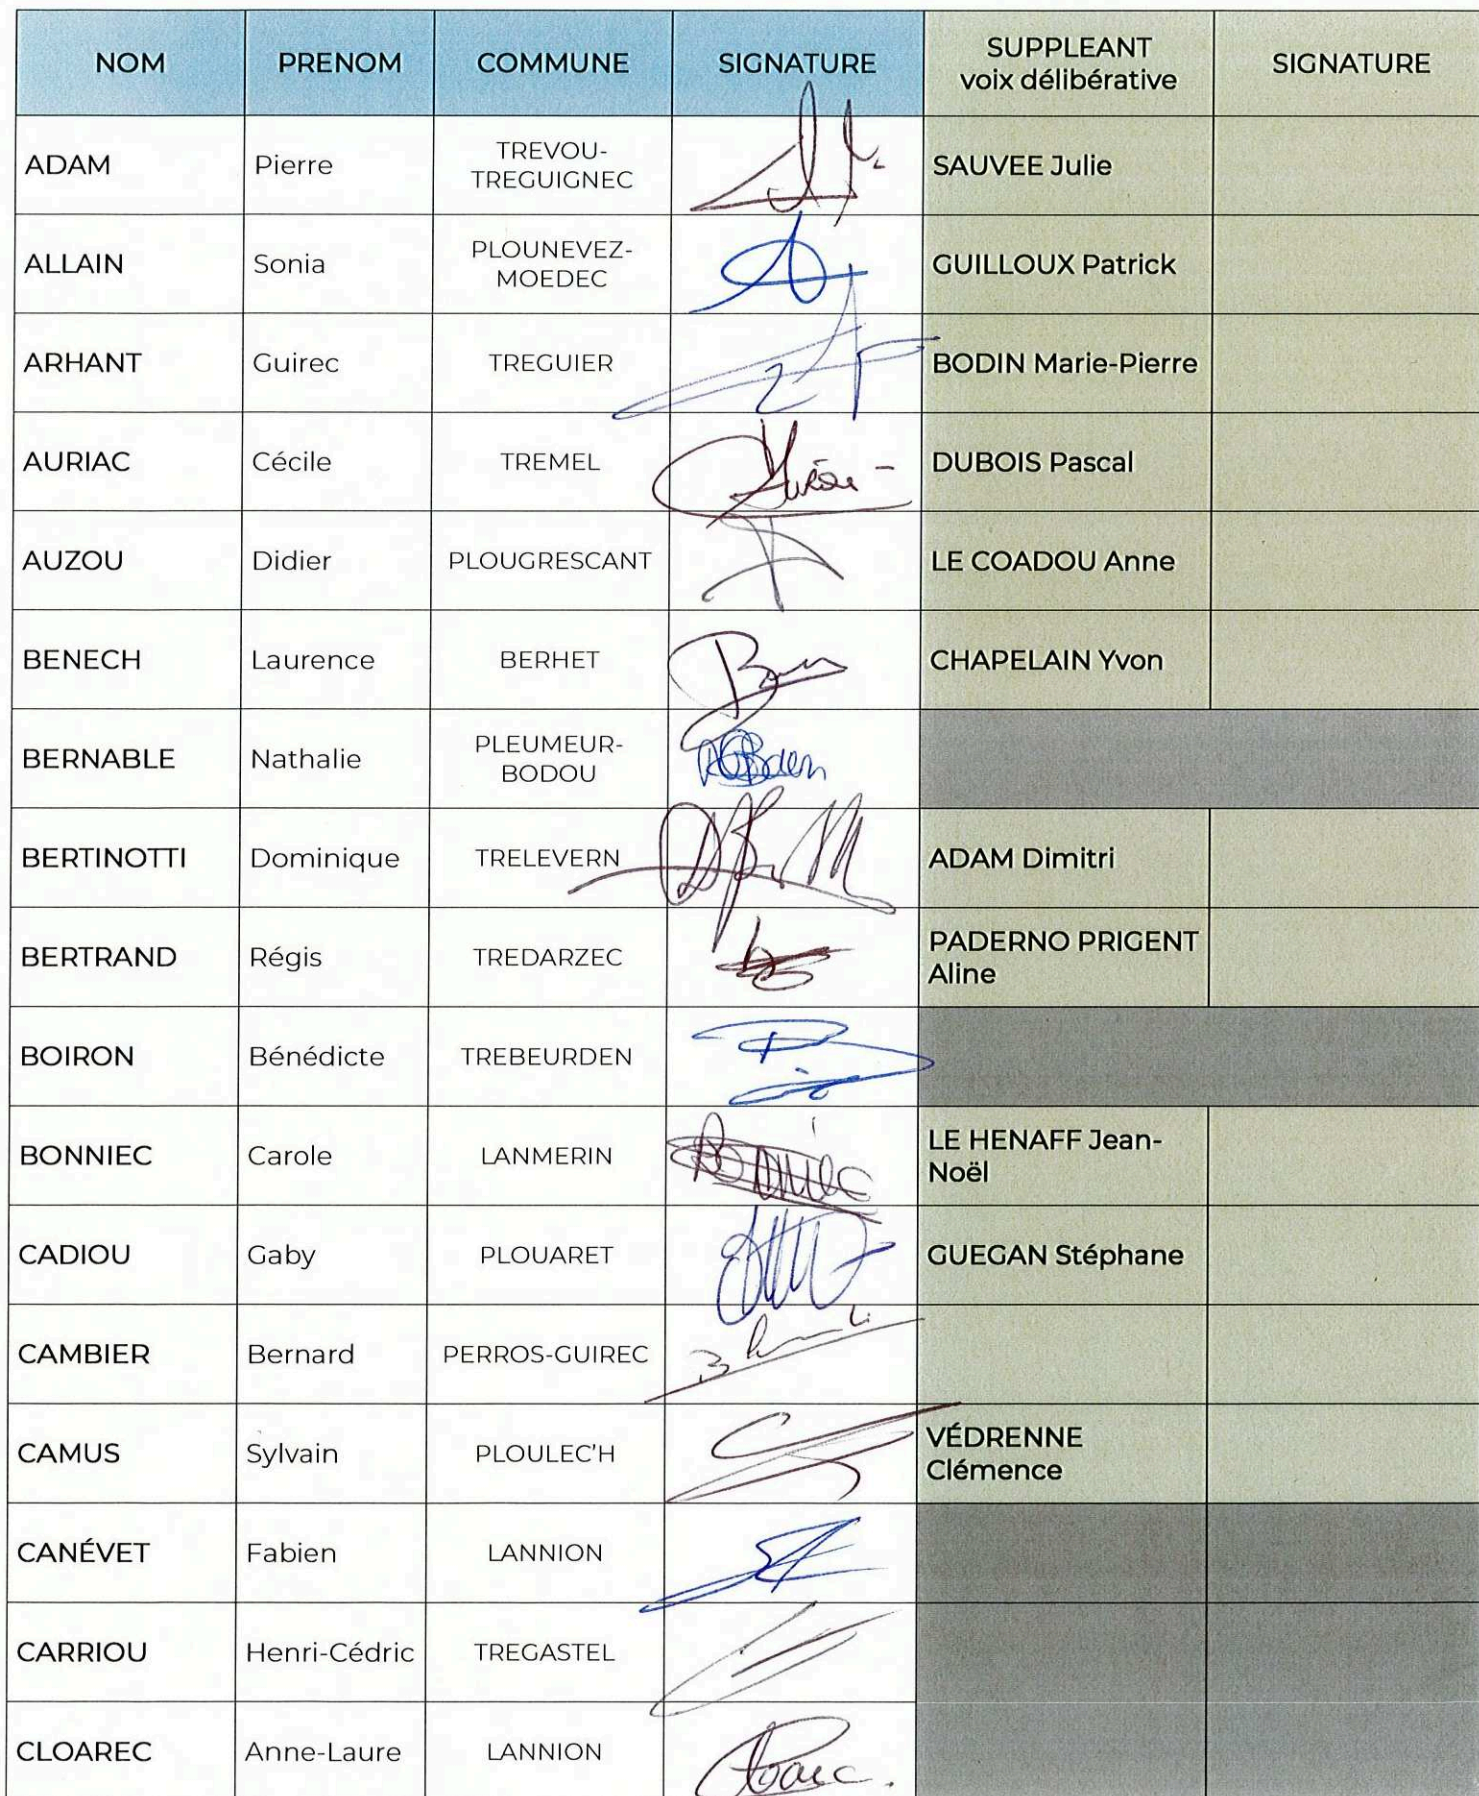 NOM PRENOM COMMUNE SIGNATURE SUPPLEANT SIGNATURE
voix délibérative
ADAM Pierre TREVOU- SAUVEE Julie
TREGUIGNEC
ALLAIN Sonia PLOUNEVEZ- GUILLOUX Patrick
MOEDEC
ARHANT Guirec TREGUIER BODIN Marie-Pierre
AURIAC Cécile TREMEL DUBOIS Pascal
AUZOU Didier PLOUGRESCANT LE COADOU Anne
BENECH Laurence BERHET CHAPELAIN Yvon
BERNABLE Nathalie PLEUMEUR-
BODOU
BERTINOTTI Dominique TRELEVERN ADAM Dimitri
BERTRAND Régis TREDARZEC PADERNO PRIGENT
Aline
BOIRON Bénédicte TREBEURDEN
BONNIEC Carole LANMERIN LE HENAFF Jean-
Noël
CADIOU Gaby PLOUARET GUEGAN Stéphane
CAMBIER Bernard PERROS-GUIREC
CAMUS Sylvain PLOULEC'H VÉDRENNE
Clémence
CANÉVET Fabien LANNION
CARRIOU Henri-Cédric TREGASTEL
CLOAREC Anne-Laure LANNION